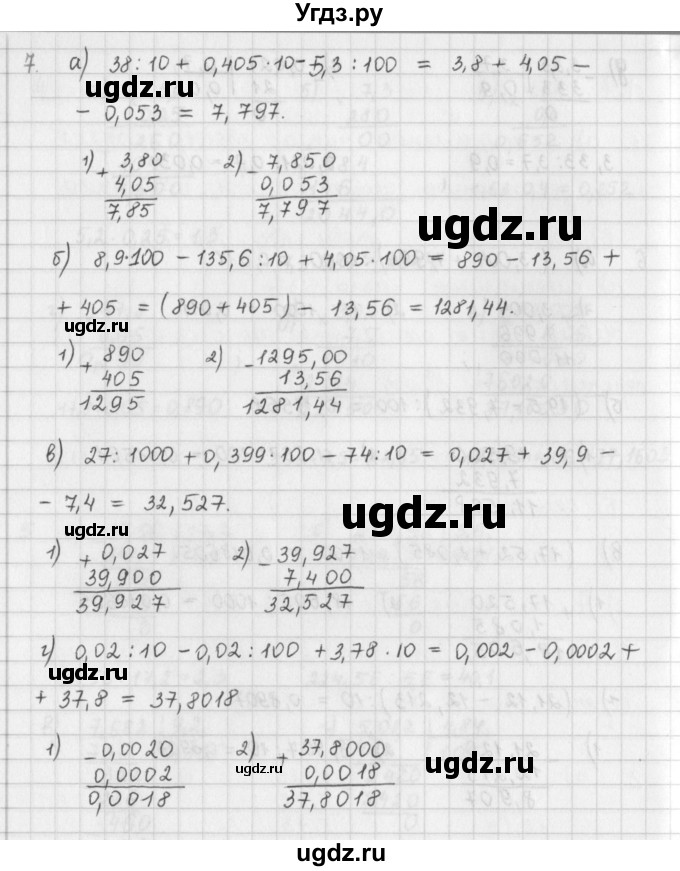 Угдз.ру
7. а) 38 : 10 + 0,405 · 10 - 5,3 : 100 = 3,8 + 4,05 -
ugdz.ru
- 0,053 = 7,797.
1) + 3,80
4,05
7,85
2) - 7,850
0,053
7,797
ugdz.ru
б) 8,9 · 100 - 135,6 : 10 + 4,05 · 100 = 890 - 13,56 +
+ 405 = (890 + 405) - 13,56 = 1281,44.
ugdz.ru
1) + 890
405
1295
2) - 1295,00
13,56
1281,44
в) 27 : 1000 + 0,399 · 100 - 74 : 10 = 0,027 + 39,9 -
- 7,4 = 32,527.
ugdz.ru
ugdz.ru
1) + 0,027
39,900
39,927
2) - 39,927
7,400
32,527
г) 0,02 : 10 - 0,02 : 100 + 3,78 · 10 = 0,002 - 0,0002 +
ugdz.ru
+ 37,8 = 37,8018
1) - 0,0020
0,0002
0,0018
2) + 37,8000
0,0018
37,8018
ugdz.ru
ugdz.ru
ugdz.ru